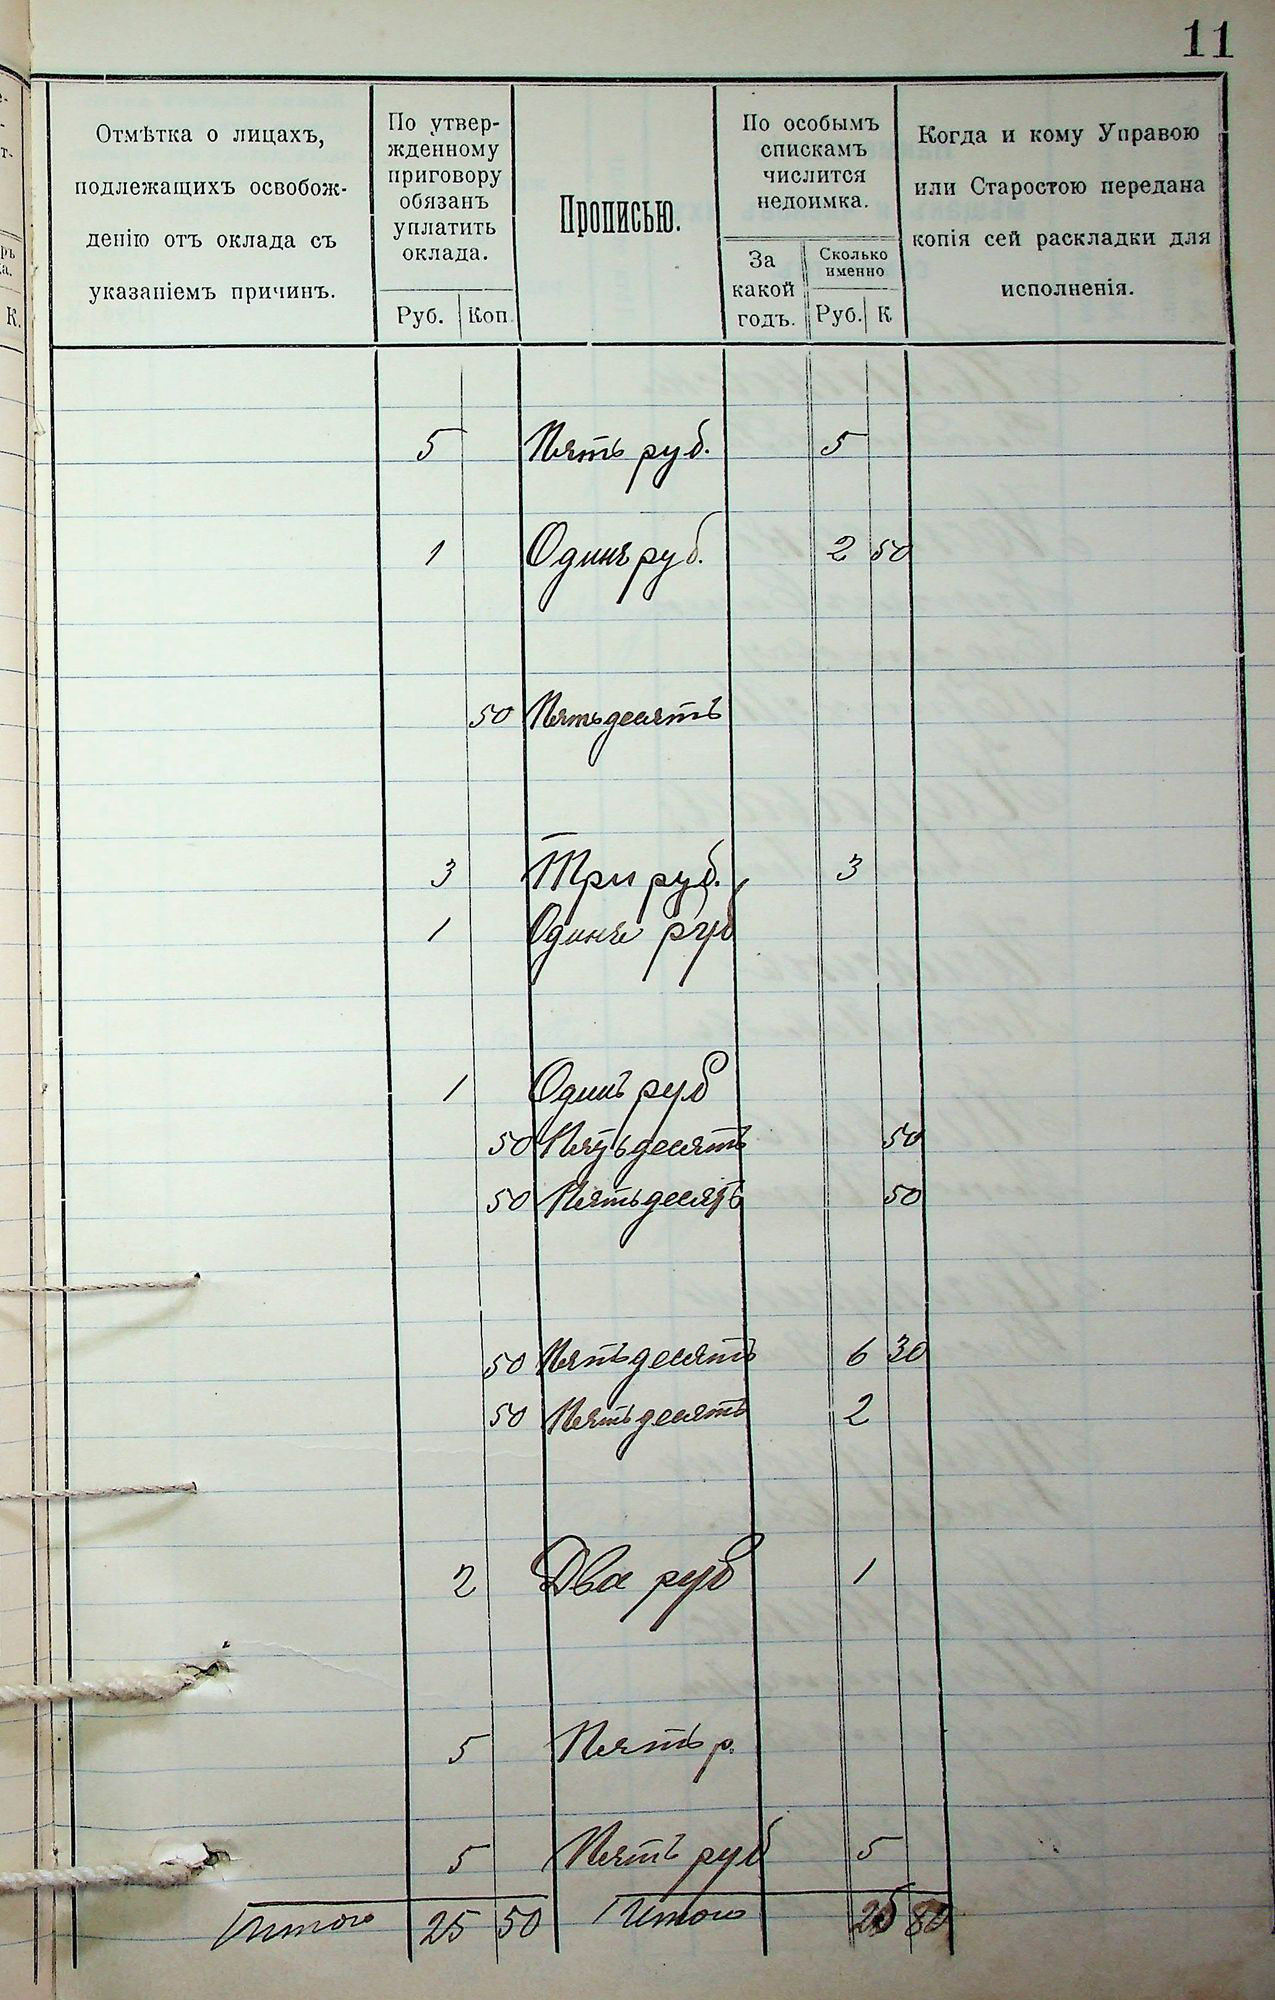 11
Отмѣтка о лицахъ,
подлежащихъ освобож-
денію отъ оклада съ
указаніемъ причинъ.
По утвер-
жденному
приговору
обязанъ
уплатить
оклада.
Руб. Коп.
Прописью.
По особымъ
спискамъ
числится
недоимка.
За
какой
годъ.
Сколько
именно
Руб. К
Когда и кому Управою
или Старостою передана
копія сей раскладки для
исполненія.
К.
5 Пять руб. 5
1 Одинъ руб. 2 50
50 Пятьдесятъ
3 Три руб. 3
1 Одинъ руб
1 Одинъ руб
50 Пятьдесятъ 50
50 Пятьдесятъ 50
50 Пятьдесятъ 6 30
50 Пятьдесятъ 2
2 Два руб 1
5 Пять р.
5 Пять руб 5
Итого 25 50 Итого 25 80